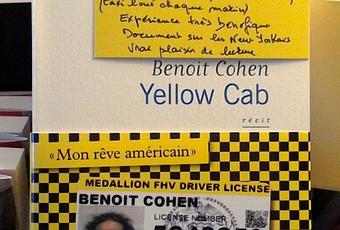 (café tout chaque matin)
Expérience très bénéfique
Document sur les New Yorkais
Vrai plaisir de lecture
Benoit Cohen
Yellow Cab
récit
« Mon rêve américain »
MEDALLION FHV DRIVER LICENSE
BENOIT COHEN
LICENSE NUMBER